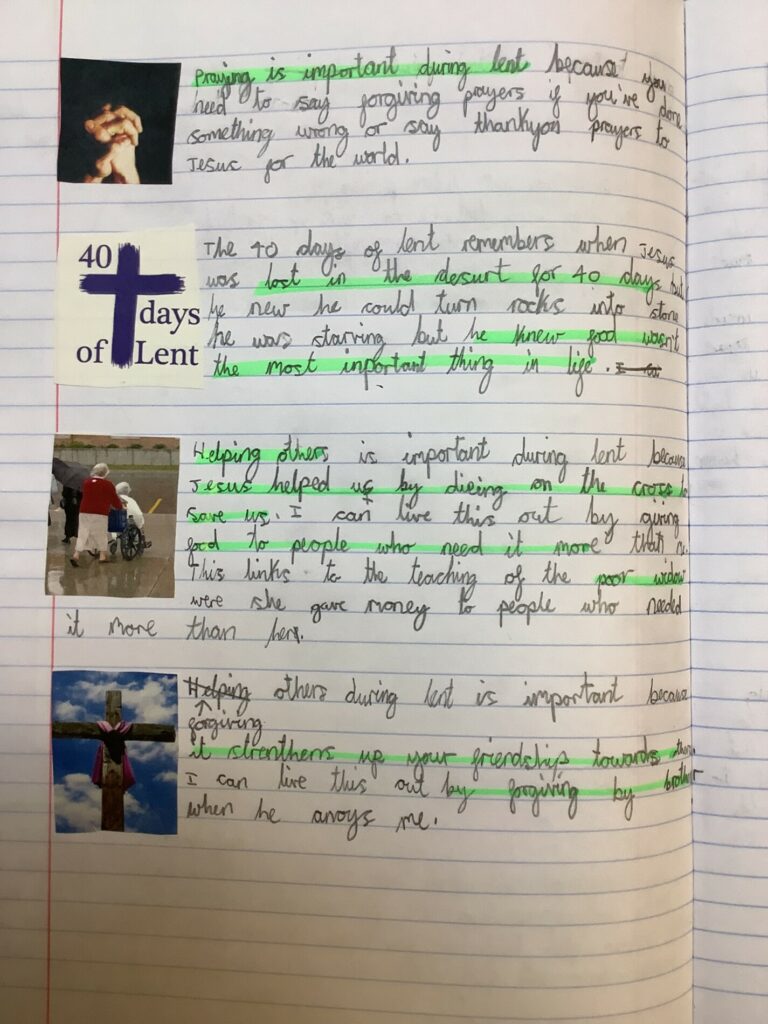 Praying is important during lent because you
need to say forgiving prayers if you've done
something wrong or say thankyou prayers to
Jesus for the world.
40
days
of Lent
The 40 days of lent remembers when Jesus
was lost in the desurt for 40 days but
he new he could turn rocks into stone
he was starving but he knew food wasn't
the most important thing in life.
Helping others is important during lent because
Jesus helped us by dieing on the cross to
save us. I can live this out by giving
food to people who need it more than me.
This links to the teaching of the poor widow
were she gave money to people who needed
it more than hers.
Helping others during lent is important because
forgiving
it strenthens up your friendship towards them
I can live this out by forgiving by brother
when he anoys me.